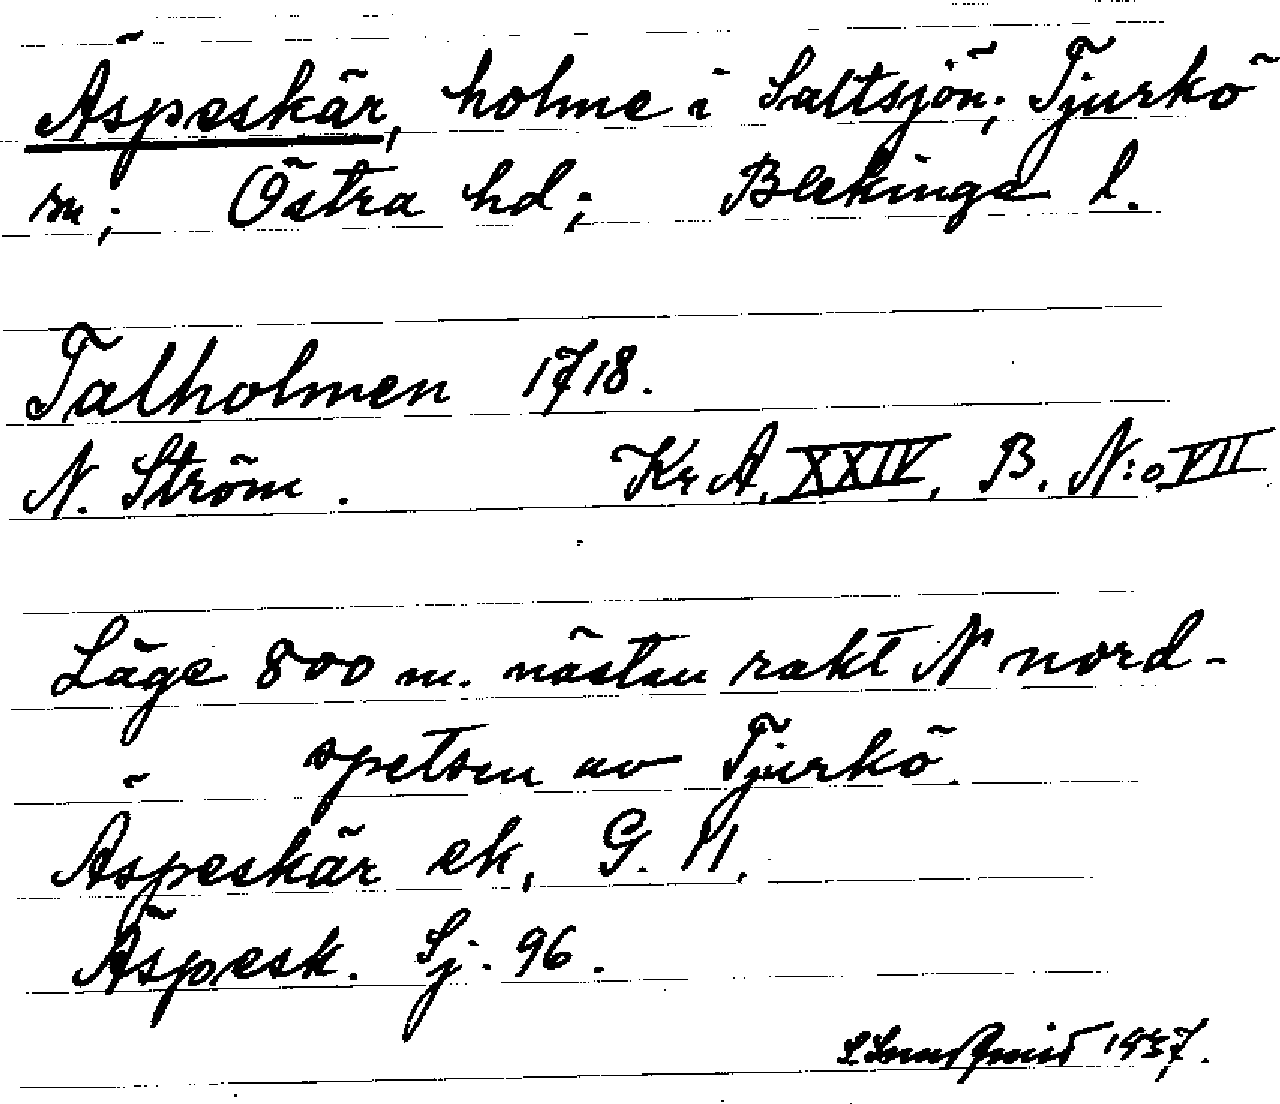 Äspeskär, holme i Saltsjön; Tjurkö
sn; Östra hd; Blekinge l.
Talholmen 1718.
N. Ström. Kr A, XXIV, B. N:o VII
Läge 800 m. nästan rakt N nord-
spetsen av Tjurkö.
Äspeskär ek, G. 11.
Äspesk. Sj. 96.
1937.